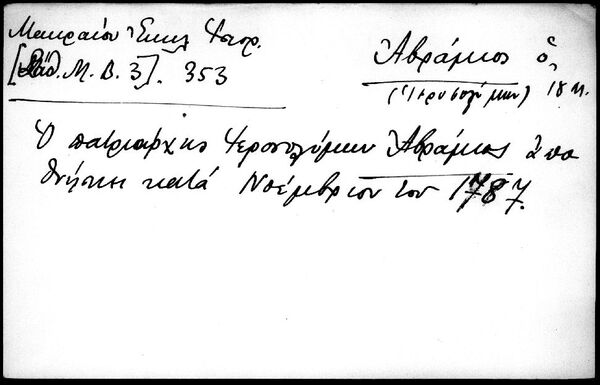 Μακραίου Ἐκκλ Ἱστορ.
[Σάθ. Μ. Β. 3]. 353
Ἀβράμιος ὁ,
(Ἱεροσολύμων) 18 κ.
Ὁ πατριάρχης Ἱεροσολύμων Ἀβράμιος ἀπο
θνήσκει κατά Νοέμβριον του 1787.